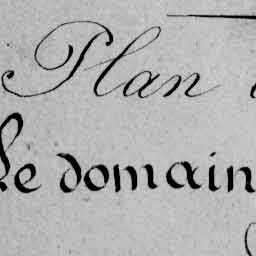 Plan
Le domain